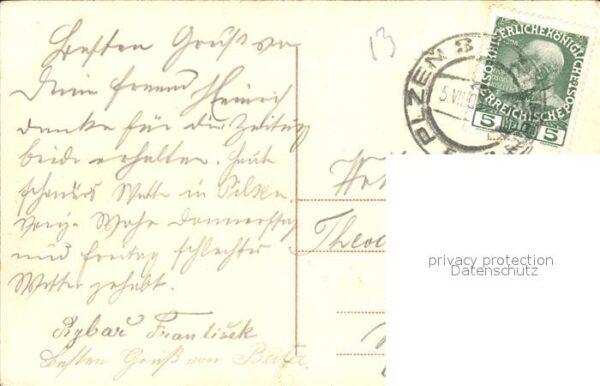 Besten Gruß von
Dein Freund Heinrich
danke für die Zeitung
beide erhalten. Heute
schönes Wetter in Pilsen.
Mohr Donnerstag
und Freitag schlechtes
Wetter gehabt.
Rybař Františ​ek
Besten Gruß von
13
PLZEŇ 3
5.VII.
KAISERLICHEKÖNIGLICHEÖS
TERREICHISCHE
5 5
Theo
privacy protection
Datenschutz